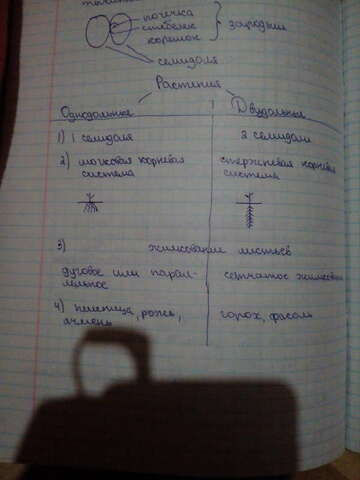 почечка
стебелек
корешок
зародыш
семидоля
Растения
Однодольные Двудольные
1) 1 семидоля 2 семидоли
2) мочковая корневая стержневая корневая
система система
3) жилкование листьев
дуговое или парал- сетчатое жилкование
лельное
4) пшеница, рожь, горох, фасоль
ячмень